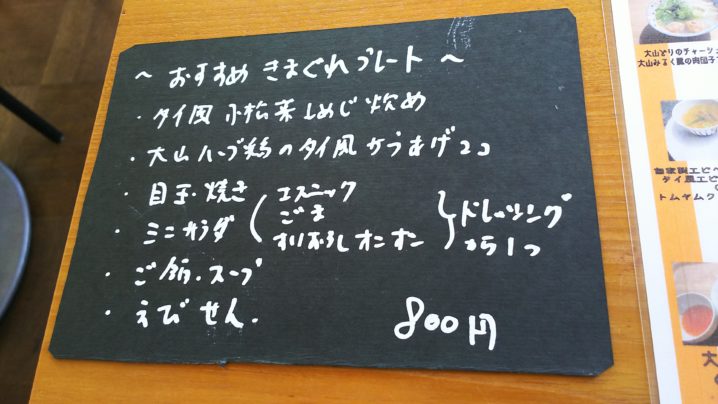 ~ おすすめ きまぐれプレート ~
・タイ風 小松菜しめじ炒め
・大山ハーブ鶏のタイ風からあげ2コ
・目玉焼き
・ミニサラダ ( エスニック
ごま
すりおろしオニオン } ドレッシング
から1つ
・ご飯・スープ
・えびせん.
800円
大山どりのチャーシュ
トムヤムク
大